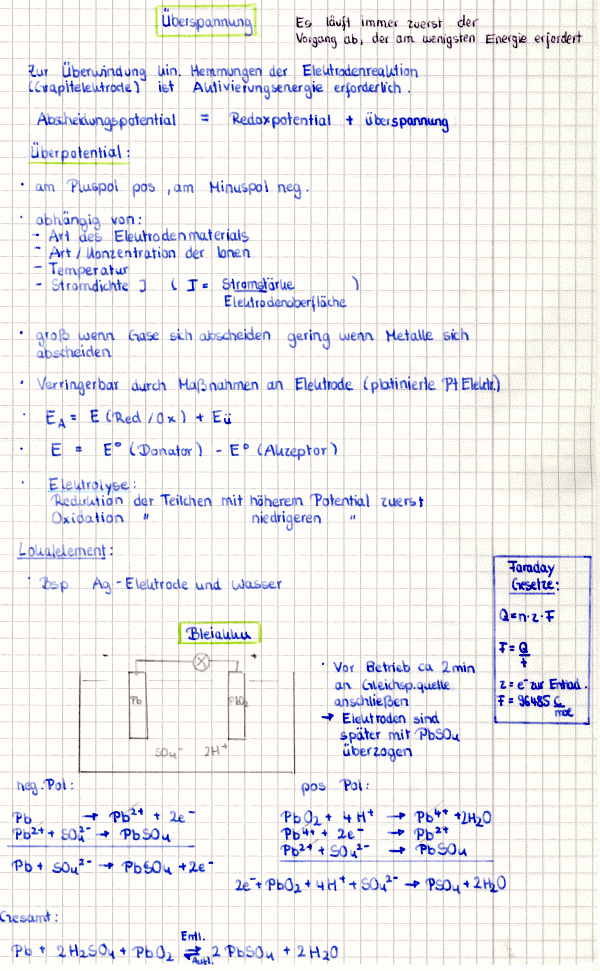 Überspannung
Es läuft immer zuerst der
Vorgang ab, der am wenigsten Energie erfordert
Zur Überwindung kin. Hemmungen der Elektrodenreaktion
(Grapitelektrode) ist Aktivierungsenergie erforderlich.
Abscheidungspotential = Redoxpotential + überspannung
Überpotential:
· am Pluspol pos, am Minuspol neg.
· abhängig von:
- Art des Elektrodenmaterials
- Art/Konzentration der Ionen
- Temperatur
- Stromdichte J ( J = Stromstärke )
Elektrodenoberfläche
· groß wenn Gase sich abscheiden gering wenn Metalle sich
abscheiden
· Verringerbar durch Maßnahmen an Elektrode (platinierte Pt Elektr.)
· E_A = E (Red/Ox) + Eü
· E = E° (Donator) - E° (Akzeptor)
· Elektrolyse:
Reduktion der Teilchen mit höherem Potential zuerst
Oxidation " niedrigeren "
Lokalelement:
· Bsp Ag-Elektrode und Wasser
Faraday
Gesetze:
Q = n·z·F
F = Q
t
z = e⁻ zur Entlad.
F = 96485 C
mol
Bleiakku
- +
Pb PbO₂
SO₄⁻ 2H⁺
· Vor Betrieb ca 2min
an Gleichsp.quelle
anschließen
→ Elektroden sind
später mit PbSO₄
überzogen
neg. Pol:
Pb → Pb²⁺ + 2e⁻
Pb²⁺ + SO₄²⁻ → PbSO₄
Pb + SO₄²⁻ → PbSO₄ + 2e⁻
pos Pol:
PbO₂ + 4H⁺ → Pb⁴⁺ + 2H₂O
Pb⁴⁺ + 2e⁻ → Pb²⁺
Pb²⁺ + SO₄²⁻ → PbSO₄
2e⁻ + PbO₂ + 4H⁺ + SO₄²⁻ → PSO₄ + 2H₂O
Gesamt:
Entl.
Pb + 2H₂SO₄ + PbO₂ ⇌ 2 PbSO₄ + 2H₂O
Aufl.